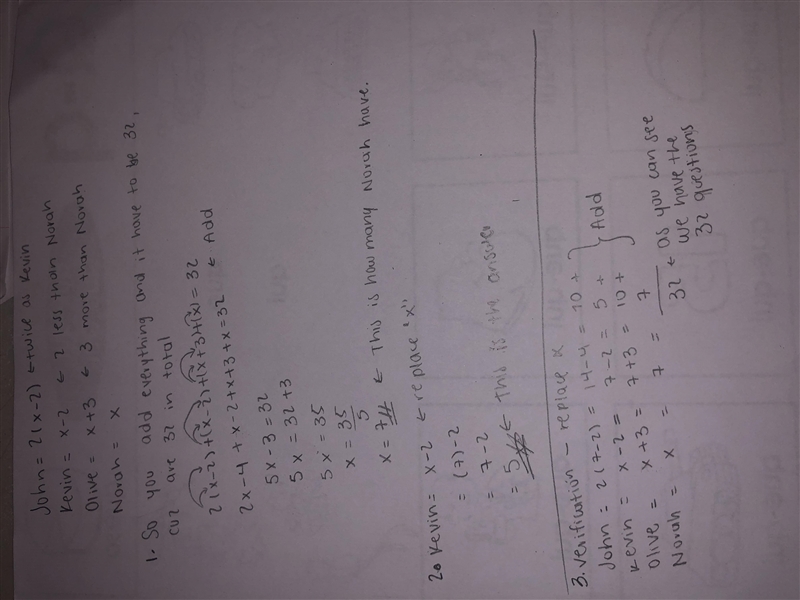 John = 2(x-2) ← twice as Kevin
Kevin = x-2 ← 2 less than Norah
Olive = x+3 ← 3 more than Norah
Norah = x
1. So you add everything and it have to be 32,
cuz are 32 in total
2(x-2)+(x-2)+(x+3)+(x) = 32
2x-4+x-2+x+3+x=32 ← Add
5x-3=32
5x = 32+3
5x = 35
x = 35/5
x = 7 ← This is how many Norah have.
2. Kevin = x-2 ← replace "x"
= (7)-2
= 7-2
= 5 ← This is the answer
3. Verification - replace x
John = 2(7-2) = 14-4 = 10 +
Kevin = x-2 = 7-2 = 5 + } Add
Olive = x+3 = 7+3 = 10 +
Norah = x = 7 = 7
32 ← as you can see
we have the
32 questions